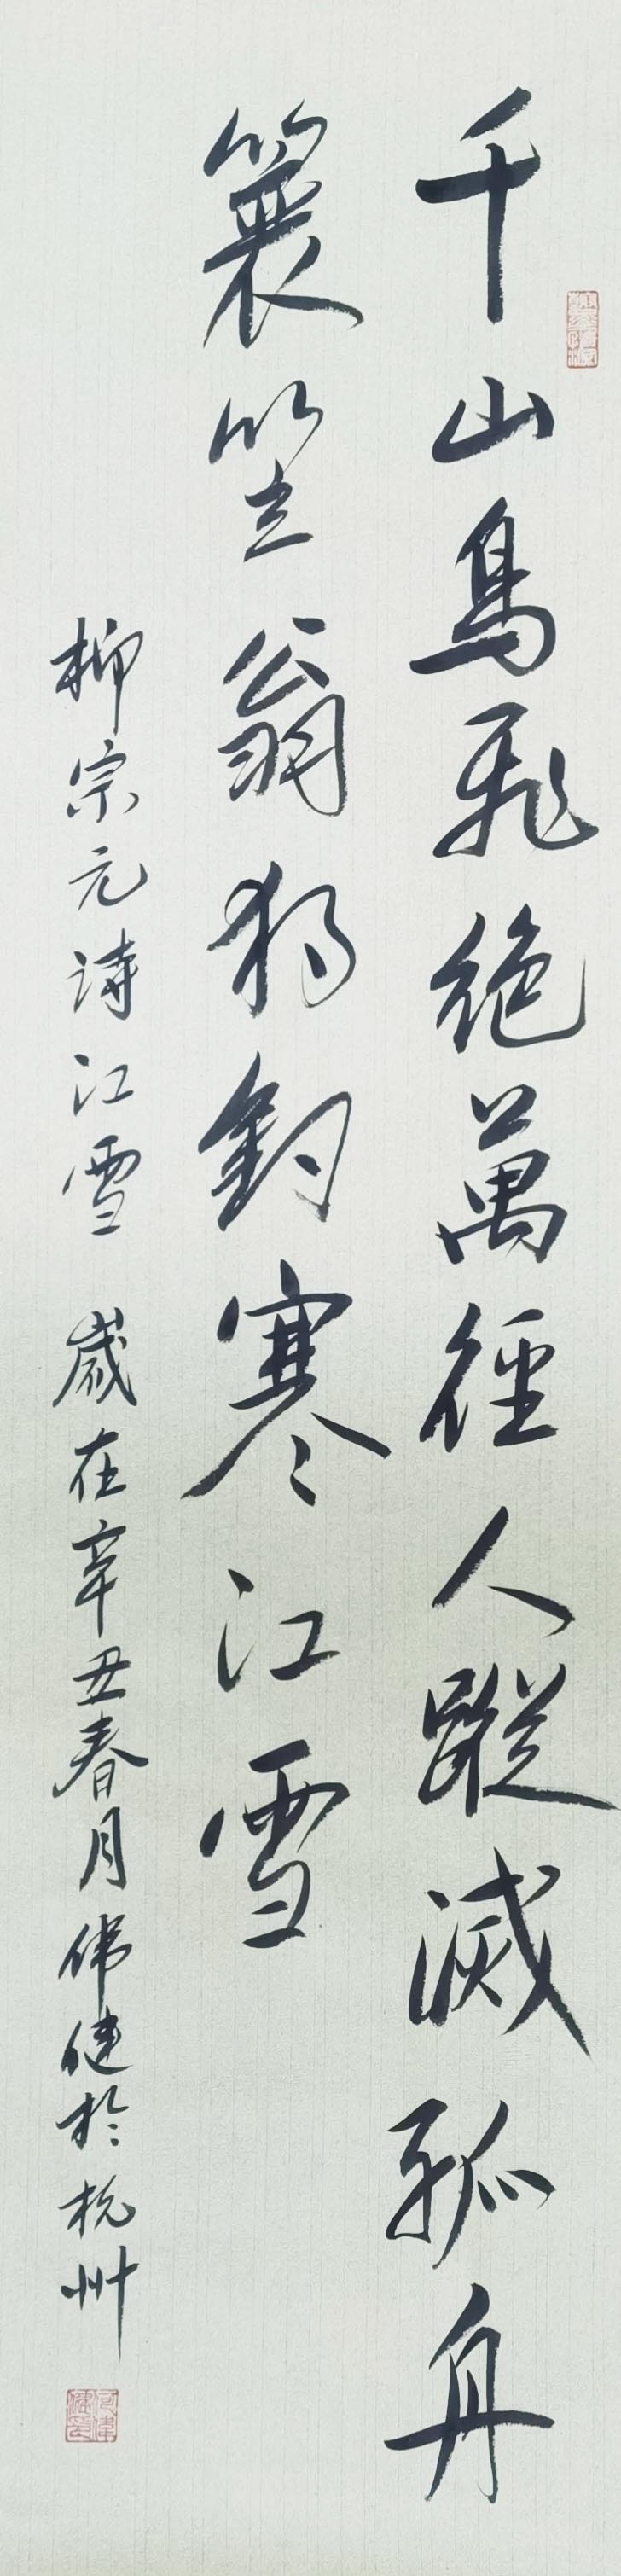 千山鳥飛絶萬徑人蹤滅孤舟
蓑笠翁独釣寒江雪
柳宗元诗江雪 歲在辛丑春月伟健於杭州